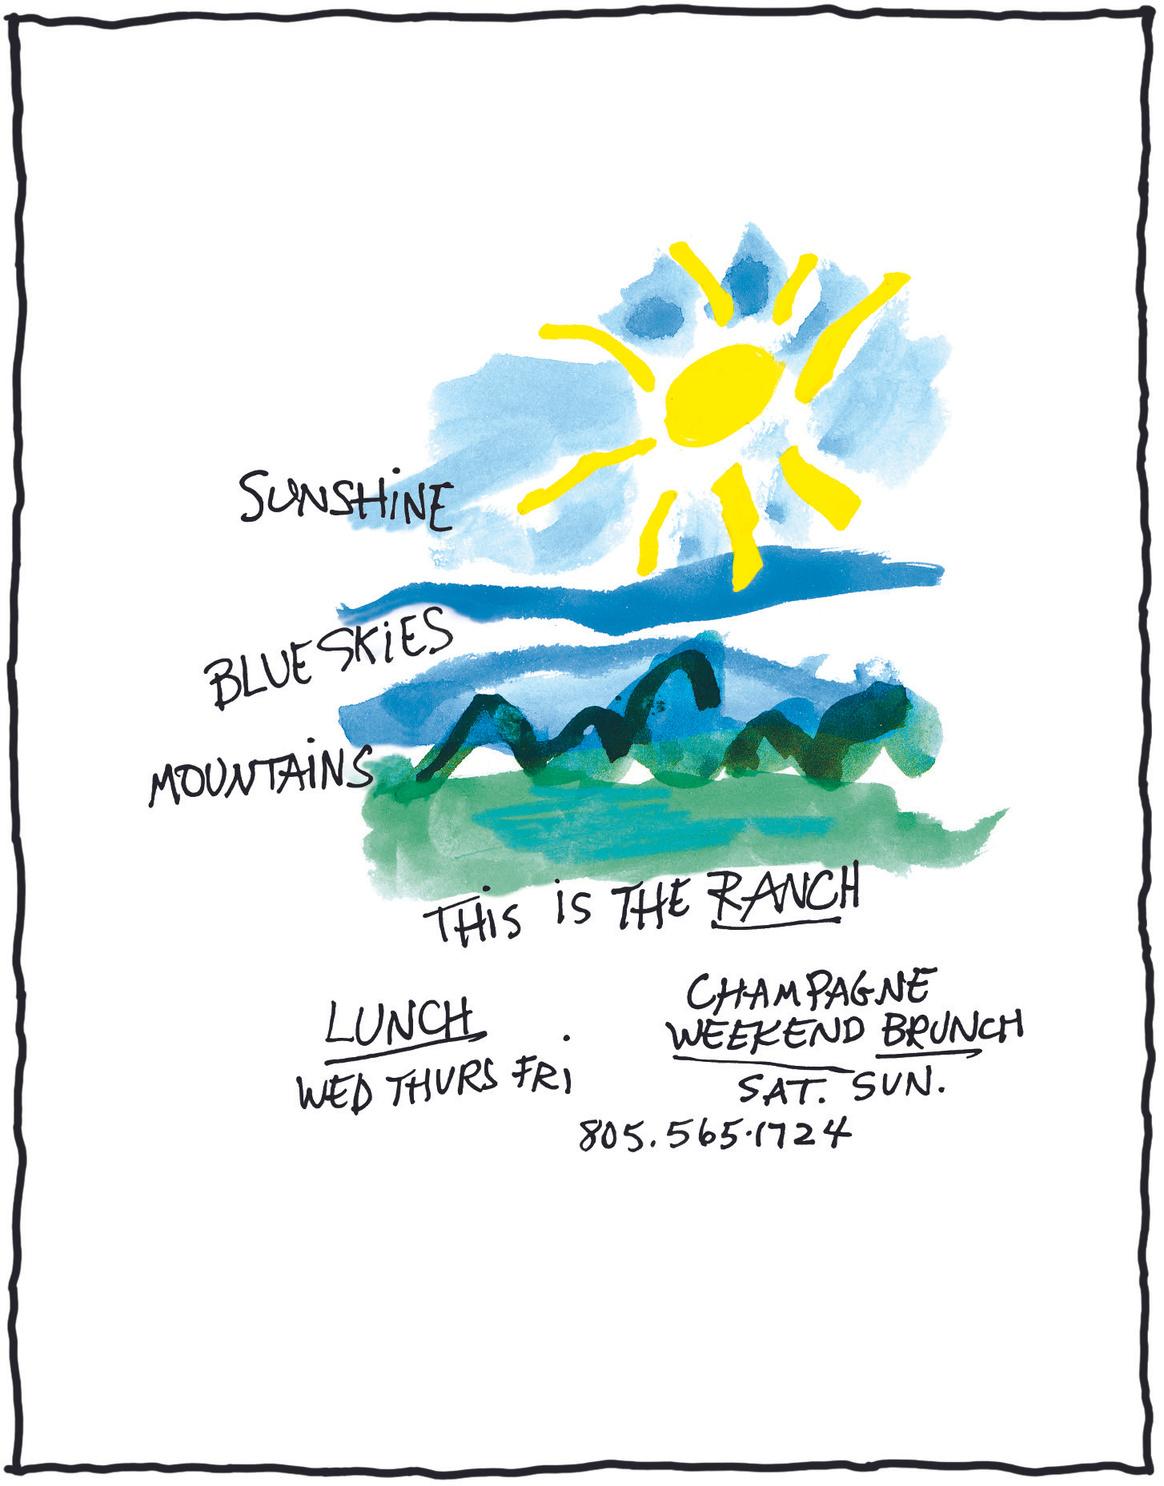 SUNSHINE
BLUE SKIES
MOUNTAINS
THIS IS THE RANCH
LUNCH
WED THURS FRI
CHAMPAGNE
WEEKEND BRUNCH
SAT. SUN.
805.565.1724